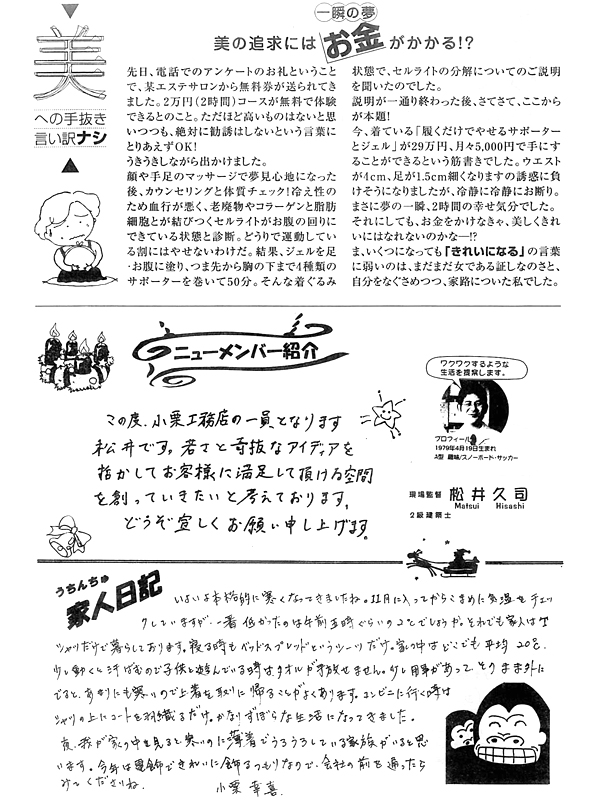 美
への手抜き
言い訳ナシ
一瞬の夢
美の追求には お金 がかかる!?
先日、電話でのアンケートのお礼ということ
で、某エステサロンから無料券が送られてき
ました。2万円（2時間）コースが無料で体験
できるとのこと。ただほど高いものはないと思
いつつも、絶対に勧誘はしないという言葉に
とりあえずOK!
うきうきしながら出かけました。
顔や手足のマッサージで夢見心地になった
後、カウンセリングと体質チェック!冷え性のた
め血行が悪く、老廃物やコラーゲンと脂肪
細胞とが結びつくセルライトがお腹の回りに
できている状態と診断。どうりで運動してい
る割にはやせないわけだ。結果、ジェルを足
・お腹に塗り、つま先から胸の下まで4種類の
サポーターを巻いて50分。そんな着ぐるみ
状態で、セルライトの分解についてのご説明
を聞いたのでした。
説明が一通り終わった後、さてさて、ここから
が本題!
今、着ている「履くだけでやせるサポーター
とジェル」が29万円、月々5,000円で手にす
ることができるという筋書きでした。ウエスト
が4cm、足が1.5cm細くなりますの誘惑に負
けそうになりましたが、冷静に冷静にお断り。
まさに夢の一瞬、2時間の幸せ気分でした。
それにしても、お金をかけなきゃ、美しくきれ
いにはなれないのかなー!?
ま、いくつになっても「きれいになる」の言葉
に弱いのは、まだまだ女である証しなのさと、
自分をなぐさめつつ、家路についた私でした。
ニューメンバー紹介
この度、小栗工務店の一員となります
松井です。若さと奇抜なアイディアを
活かしてお客様に満足して頂ける空間
を創っていきたいと考えております。
どうぞ宜しくお願い申し上げます。
ワクワクするような
生活を提案します。
プロフィール
1979年4月19日生まれ
A型 趣味/スノーボード・サッカー
現場監督 松井久司
Matsui Hisashi
2級建築士
うちんちゅ
家人日記
いよいよ本格的に寒くなってきましたね。11月に入ってからこまめに気温をチェッ
クしていますが、一番低かったのは午前五時ぐらいの2°でしょうか。それでも家人はT
シャツだけで暮らしております。寝る時もベッドスプレッドというシーツだけ。家の中はどこでも平均20°。
少し動くと汗ばむので子供と遊んでいる時はタオルが手放せません。少し用事があって、そのまま外に
でると、あまりにも寒いので上着を取りに帰ることがよくあります。コンビニに行く時は
シャツの上にコートを羽織るだけ。かなりずぼらな生活になってきました。
夜、我が家の中を見ると寒いのに薄着でうろうろしている家族がいると思
います。今年は電飾できれいに飾るつもりなので、会社の前を通ったら
みてくださいね。
小栗 幸喜